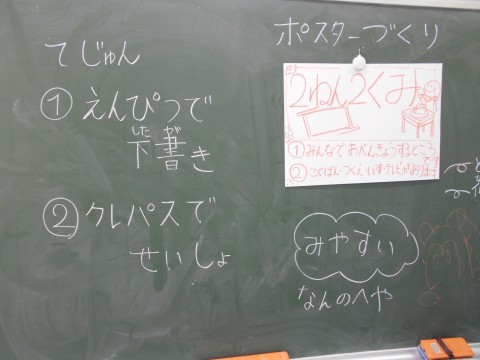 ポスターづくり
てじゅん
① えんぴつで
下書き
した が
② クレパスで
せいしょ
2ねん2くみ
① みんなでおべんきょうするところ
② こくばん・つくえ・いす・テレビがあります
みやすい
なんのへや